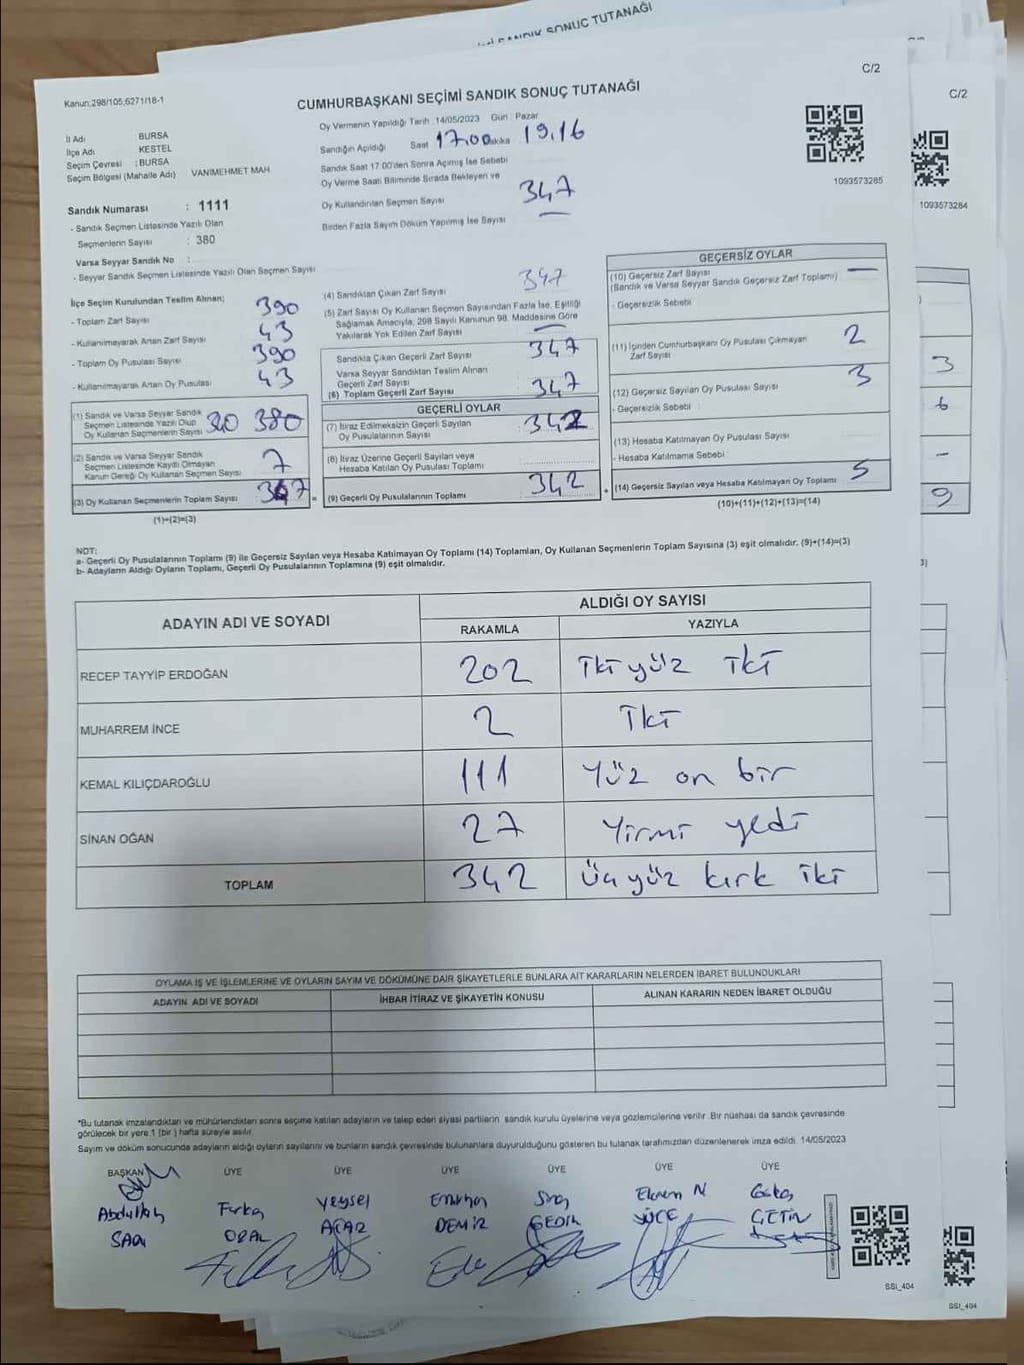 SANDIK SONUÇ TUTANAĞI
C/2
C/2
Kanun;298/105,6271/18-1
CUMHURBAŞKANI SEÇİMİ SANDIK SONUÇ TUTANAĞI
İl Adı BURSA
İlçe Adı KESTEL
Seçim Çevresi : BURSA
Seçim Bölgesi (Mahalle Adı) VANIMEHMET MAH
Oy Vermenin Yapıldığı Tarih 14/05/2023 Gün Pazar
Sandığın Açıldığı Saat 17.00 Dakika 19.16
Sandık Saat 17 00'den Sonra Açımış İse Sebebi
Oy Verme Saati Bitiminde Sırada Bekleyen ve
Oy Kullandırılan Seçmen Sayısı 347
Birden Fazla Sayım Döküm Yapılmış İse Sayısı
1093573285
1093573284
Sandık Numarası : 1111
- Sandık Seçmen Listesinde Yazılı Olan
Seçmenlerin Sayısı : 380
Varsa Seyyar Sandık No :
- Seyyar Sandık Seçmen Listesinde Yazılı Olan Seçmen Sayısı
İlçe Seçim Kurulundan Teslim Alınan;
- Toplam Zarf Sayısı 390
- Kullanılmayarak Artan Zarf Sayısı 43
- Toplam Oy Pusulası Sayısı 390
- Kullanılmayarak Artan Oy Pusulası 43
(1) Sandık ve Varsa Seyyar Sandık
Seçmen Listesinde Yazılı Olup
Oy Kullanan Seçmenlerin Sayısı 380
(2) Sandık ve Varsa Seyyar Sandık
Seçmen Listesinde Kayıtlı Olmayan
Kanun Gereği Oy Kullanan Seçmen Sayısı 7
(3) Oy Kullanan Seçmenlerin Toplam Sayısı 347 =
(1)+(2)=(3)
(4) Sandıktan Çıkan Zarf Sayısı 347
(5) Zarf Sayısı Oy Kullanan Seçmen Sayısından Fazla İse, Eşitliği
Sağlamak Amacıyla, 298 Sayılı Kanunun 98. Maddesine Göre
Yakılarak Yok Edilen Zarf Sayısı —
Sandıkta Çıkan Geçerli Zarf Sayısı 347
Varsa Seyyar Sandıktan Teslim Alınan
Geçerli Zarf Sayısı
(6) Toplam Geçerli Zarf Sayısı 347
GEÇERLİ OYLAR
(7) İtiraz Edilmeksizin Geçerli Sayılan
Oy Pusulalarının Sayısı : 342
(8) İtiraz Üzerine Geçerli Sayılan veya
Hesaba Katılan Oy Pusulası Toplamı
(9) Geçerli Oy Pusulalarının Toplamı 342 +
GEÇERSİZ OYLAR
(10) Geçersiz Zarf Sayısı —
(Sandık ve Varsa Seyyar Sandık Geçersiz Zarf Toplamı)
- Geçersizlik Sebebi
(11) İçinden Cumhurbaşkanı Oy Pusulası Çıkmayan
Zarf Sayısı 2
(12) Geçersiz Sayılan Oy Pusulası Sayısı 3
- Geçersizlik Sebebi :
(13) Hesaba Katılmayan Oy Pusulası Sayısı
- Hesaba Katılmama Sebebi
(14) Geçersiz Sayılan veya Hesaba Katılmayan Oy Toplamı 5
(10)+(11)+(12)+(13)=(14)
3
6
-
9
NOT:
a- Geçerli Oy Pusulalarının Toplamı (9) ile Geçersiz Sayılan veya Hesaba Katılmayan Oy Toplamı (14) Toplamları, Oy Kullanan Seçmenlerin Toplam Sayısına (3) eşit olmalıdır. (9)+(14)=(3)
b- Adayların Aldığı Oyların Toplamı, Geçerli Oy Pusulalarının Toplamına (9) eşit olmalıdır.
ADAYIN ADI VE SOYADI ALDIĞI OY SAYISI
RAKAMLA YAZIYLA
RECEP TAYYİP ERDOĞAN 202 İki yüz iki
MUHARREM İNCE 2 İki
KEMAL KILIÇDAROĞLU 111 Yüz on bir
SİNAN OĞAN 27 Yirmi yedi
TOPLAM 342 Üç yüz kırk iki
OYLAMA İŞ VE İŞLEMLERİNE VE OYLARIN SAYIM VE DÖKÜMÜNE DAİR ŞİKAYETLERLE BUNLARA AİT KARARLARIN NELERDEN İBARET BULUNDUKLARI
ADAYIN ADI VE SOYADI İHBAR İTİRAZ VE ŞİKAYETİN KONUSU ALINAN KARARIN NEDEN İBARET OLDUĞU
*Bu tutanak imzalandıktan ve mühürlendikten sonra seçime katılan adayların ve talep eden siyasi partilerin sandık kurulu üyelerine veya gözlemcilerine verilir .Bir nüshası da sandık çevresinde
görülecek bir yere 1 (bir ) hafta süreyle asılır.
Sayım ve döküm sonucunda adayların aldığı oyların sayılarını ve bunların sandık çevresinde bulunanlara duyurulduğunu gösteren bu tutanak tarafımızdan düzenlenerek imza edildi. 14/05/2023
BAŞKAN ÜYE ÜYE ÜYE ÜYE ÜYE ÜYE
Abdullah Veysel Emirhan Ekrem N
ACAR DEMİR GEDİK YÜCE ÇETİN
SSI_404
SSI_404